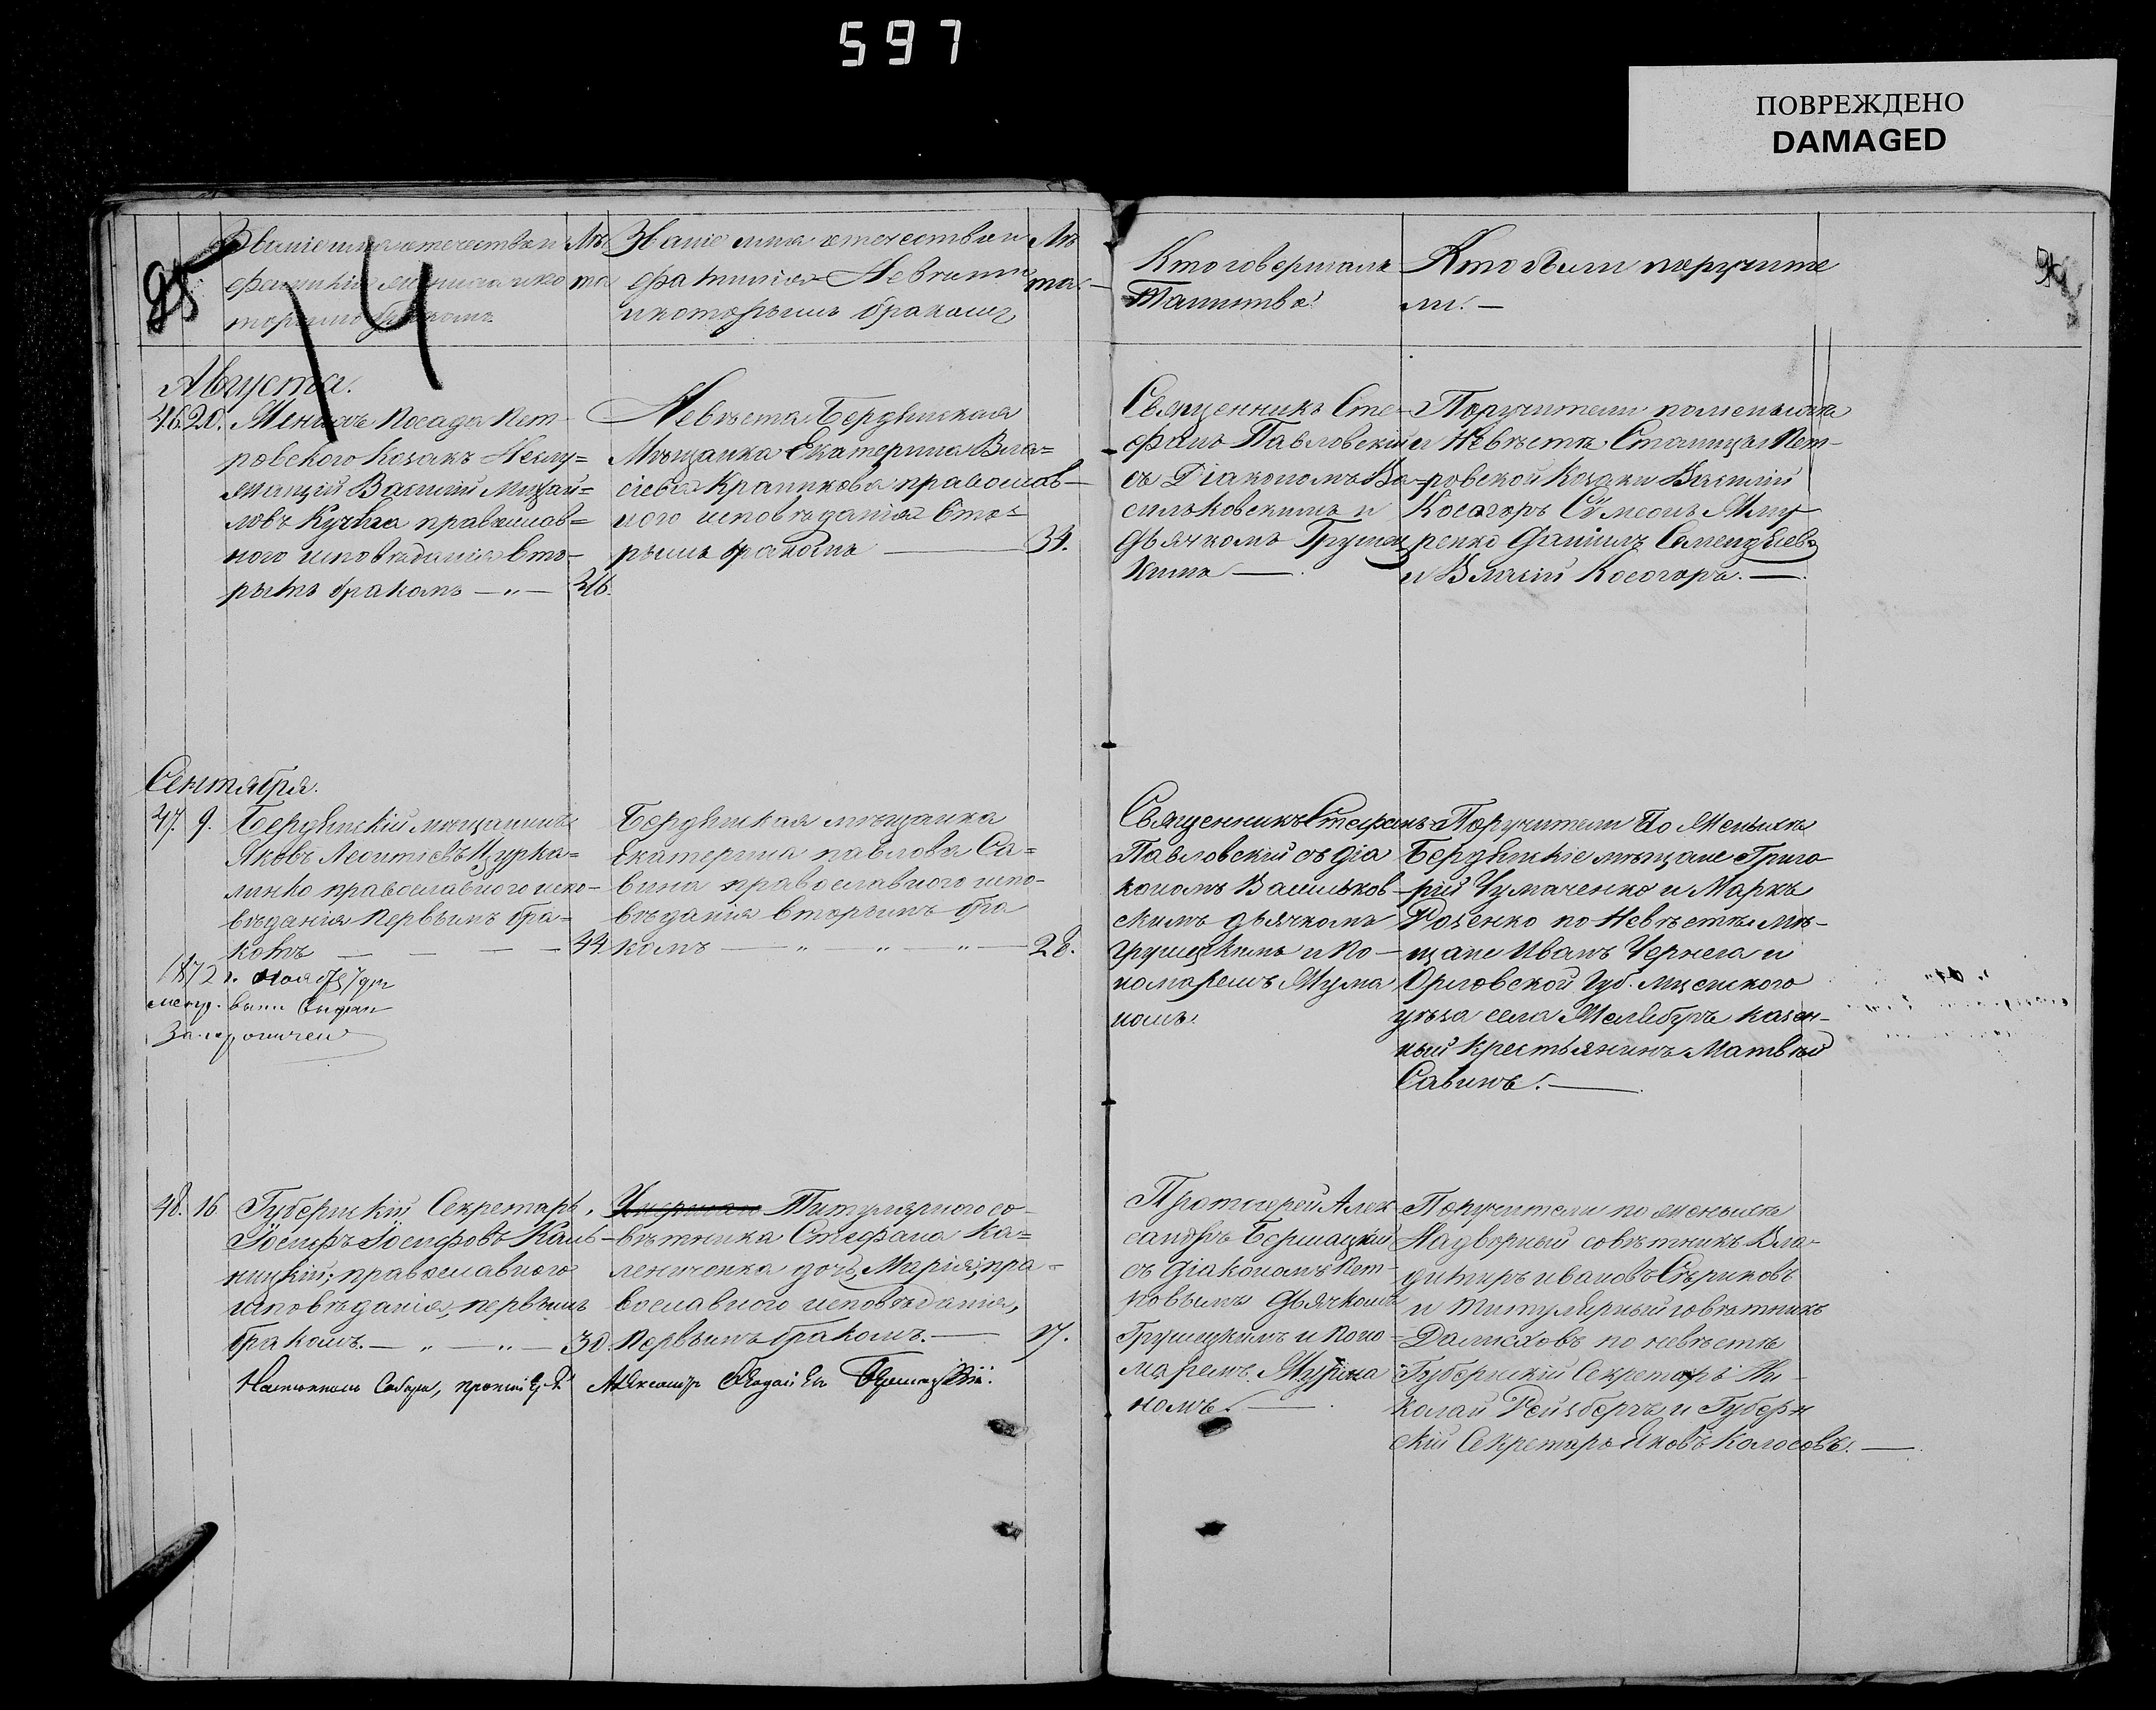 597
ПОВРЕЖДЕНО
DAMAGED
14
Званіе имя отечество и
фамилія жениха и ко
торымъ бракомъ
Лѣ
та
Званіе имя отечество и
фамилія Невѣсты
и которымъ бракомъ
Лѣ
та
Кто совершалъ
Таинство
Кто были поручите
ли. —
Августа.
46. 20. Женихъ Посада Пет-
ровского Козакъ Неслу=
жащій Василій Михай=
ловъ православ=
ного исповѣданія вто-
рымъ бракомъ — „ —
Невѣста Бердянская
Мѣщанка Екатерина Вла=
сіева православ-
ного исповѣданія Вто=
рымъ бракомъ — 34.
Священникъ Сте-
фанъ Павловскій
съ Діакономъ Ва-
сильковскимъ и
дьячкомъ Грушец
кимъ — .
Поручители по женыха
и Невѣстѣ Станицы Пет-
ровской Козаки Василій
Косогоръ Сѵмеонъ
Даніилъ
и Власій Косогоръ. — .
Сентября.
47. 9. Бердянскій мѣщанинъ
Яковъ Леонтіевъ Цурка=
ленко православного испо-
вѣданія Первымъ бра=
комъ — — — 44.
1872 г.
Бердянская мѣщанка
Екатерина павлова Са=
вина православного испо-
вѣданія вторымъ бра
комъ — „ — „ — „ — 28.
Священникъ Стефанъ
Павловскій съ діа
кономъ Васильков-
скимъ дьячкомъ
Грушецкимъ и По-
номаремъ
номъ.
Поручители По Женыхъ
Бердянскіе мѣщане Григо
рій Чумаченко и Маркъ
по Невѣстѣ мѣ-
щане Иванъ Чернега и
Орловской Губ. Мценского
уѣзда села казен-
ный крестьянинъ Матвѣй
Савинъ. — .
48. 16 Губернскій Секретарь,
Іосифъ Іосифовъ
ницкій; православного
исповѣданія, первымъ
бракомъ. — „ — „ — 30.
Титулярного со-
вѣтника Стефана Ка=
лениченка дочь, Марія, пра=
вославного исповѣданія,
Первымъ бракомъ. — 17.
Протоіерей Алек
сандръ
съ діакономъ Пет-
ровымъ Дьячкомъ
Грушецкимъ и Поно
маремъ
номъ. — .
Поручители по женыхъ
Надворный совѣтникъ Вла-
диміръ ивановъ
и титулярный совѣтникъ
по невѣстѣ
Губернскій Секретарь Ни-
колай и Губерн
скій Секретарь Яковъ Колосовъ. — .